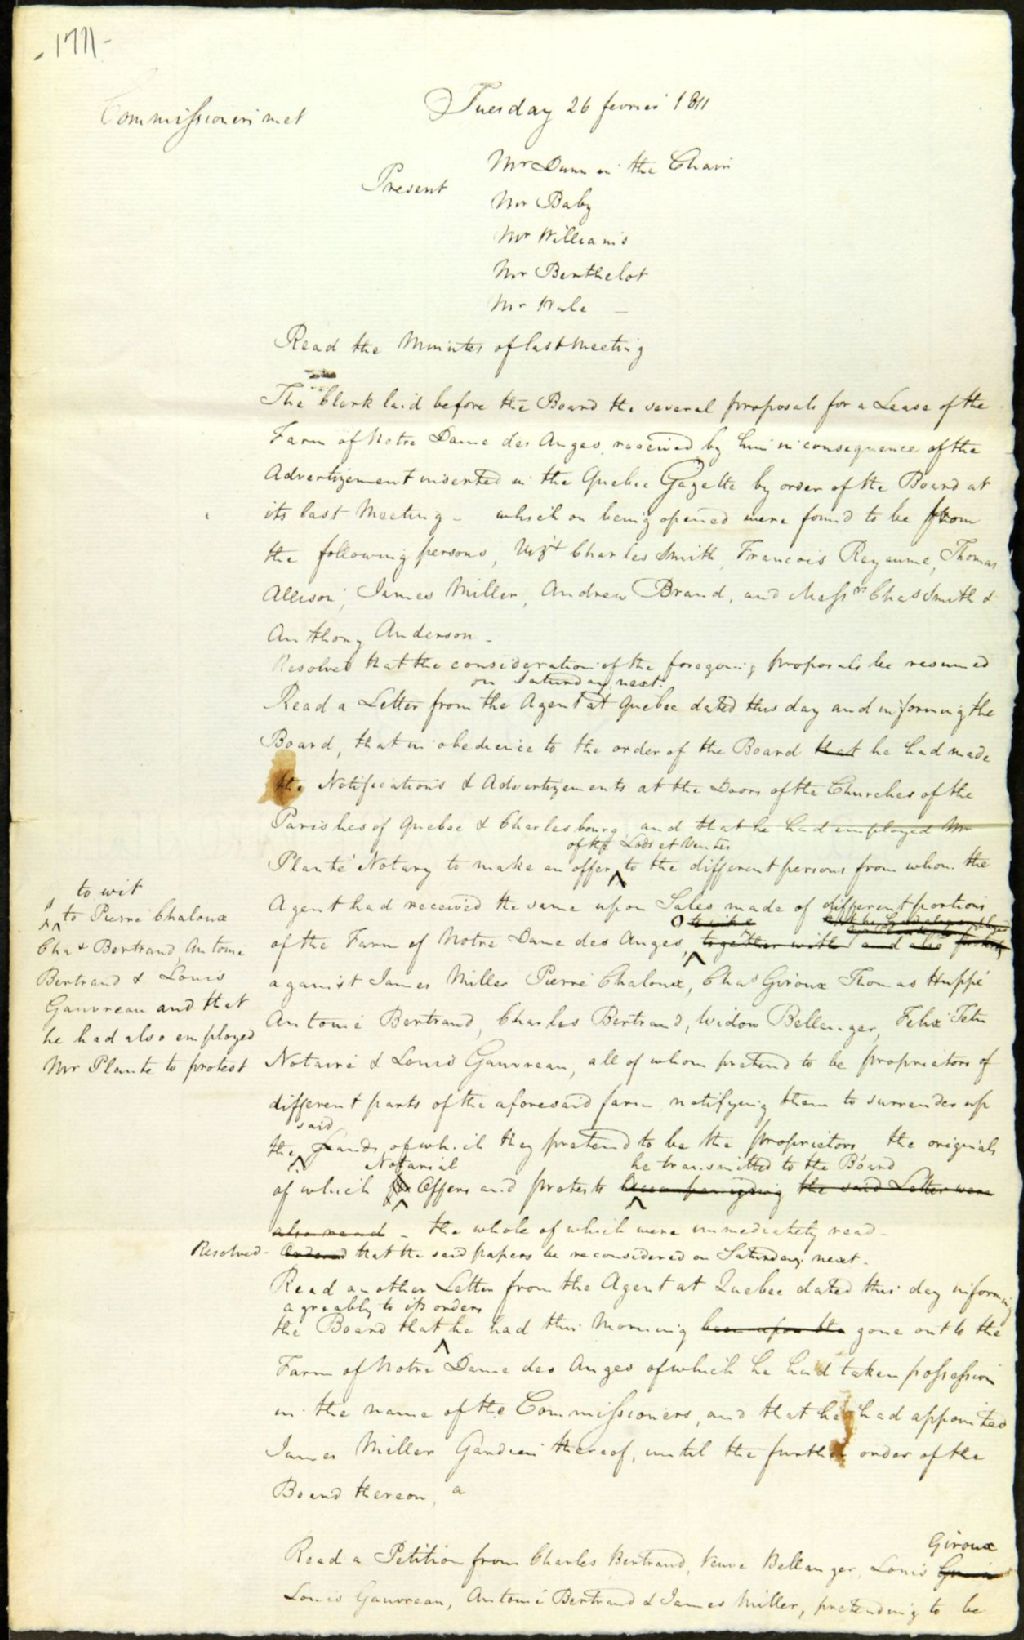 1711-
Commissioners met
Tuesday 26 fevrier 1811
Present
Mr Dunn in the Chair
Mr Baby
Mr Williams
Mr Berthelot
Mr Hale
Read the Minutes of last Meeting
The Clerk laid before the Board the several proposals for a Lease of the
Farm of Notre Dame des Anges, received by him in consequence of the
Advertizement inserted in the Quebec Gazette by order of the Board at
its last Meeting - which on being opened were found to be from
the following persons, Vizt Charles Smith, Francois Reyaume, Thomas
Allison, James Miller, Andrew Brand, and Messrs Chas Smith &
Anthony Anderson -
Resolved that the consideration of the foregoing proposals be resumed
on Saturday next.
Read a Letter from the Agent at Quebec dated this day and informing the
Board, that in obedience to the order of the Board that he had made
the Notifications & Advertizements at the Doors of the Churches of the
Parishes of Quebec & Charlesbourg, and that he had employed Mr
of the Lods et Ventes
Planté Notary to make an offer to the different persons from whom the
Agent had received the same upon Sales made of different portions
of the Farm of Notre Dame des Anges, together with and to protest
to wit
to Pierre Chaloux
Chas Bertrand, Antoine
Bertrand & Louis
Gauvreau and that
he had also employed
Mr Plante to protest
against James Miller Pierre Chaloux, Chas Giroux Thomas Huppé
Antoine Bertrand, Charles Bertrand, Widow Bellenger, Felix Tetu
Notaire & Louis Gauvreau, all of whom pretend to be proprietors of
different parts of the aforesaid farm notifying them to surrender up
said
the Lands of which they pretend to be the proprietors the originals
Notarial he transmitted to the Board
of which Offers and protests accompanying the said Letter were
also read - the whole of which were immediately read -
Resolved - Ordered that the said papers be reconsidered on Saturday next.
Read another Letter from the Agent at Quebec dated this day informing
agreably to its orders
the Board that he had this Morning been upon the gone out to the
Farm of Notre Dame des Anges of which he had taken possession
in the name of the Commissioners, and that he had appointed
James Miller Gardien thereof, until the further order of the
Board thereon,
Giroux
Read a Petition from Charles Bertrand, Veuve Bellanger, Louis
Louis Gauvreau, Antoine Bertrand & James Miller, pretending to be